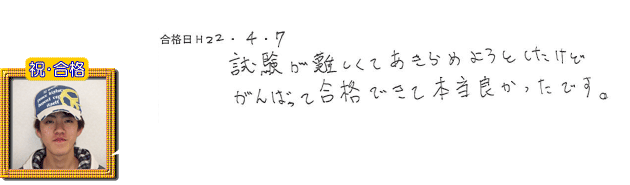 合格日 H22.4.7
祝・合格
試験が難しくてあきらめようとしたけど
がんばって合格できて本当良かったです。